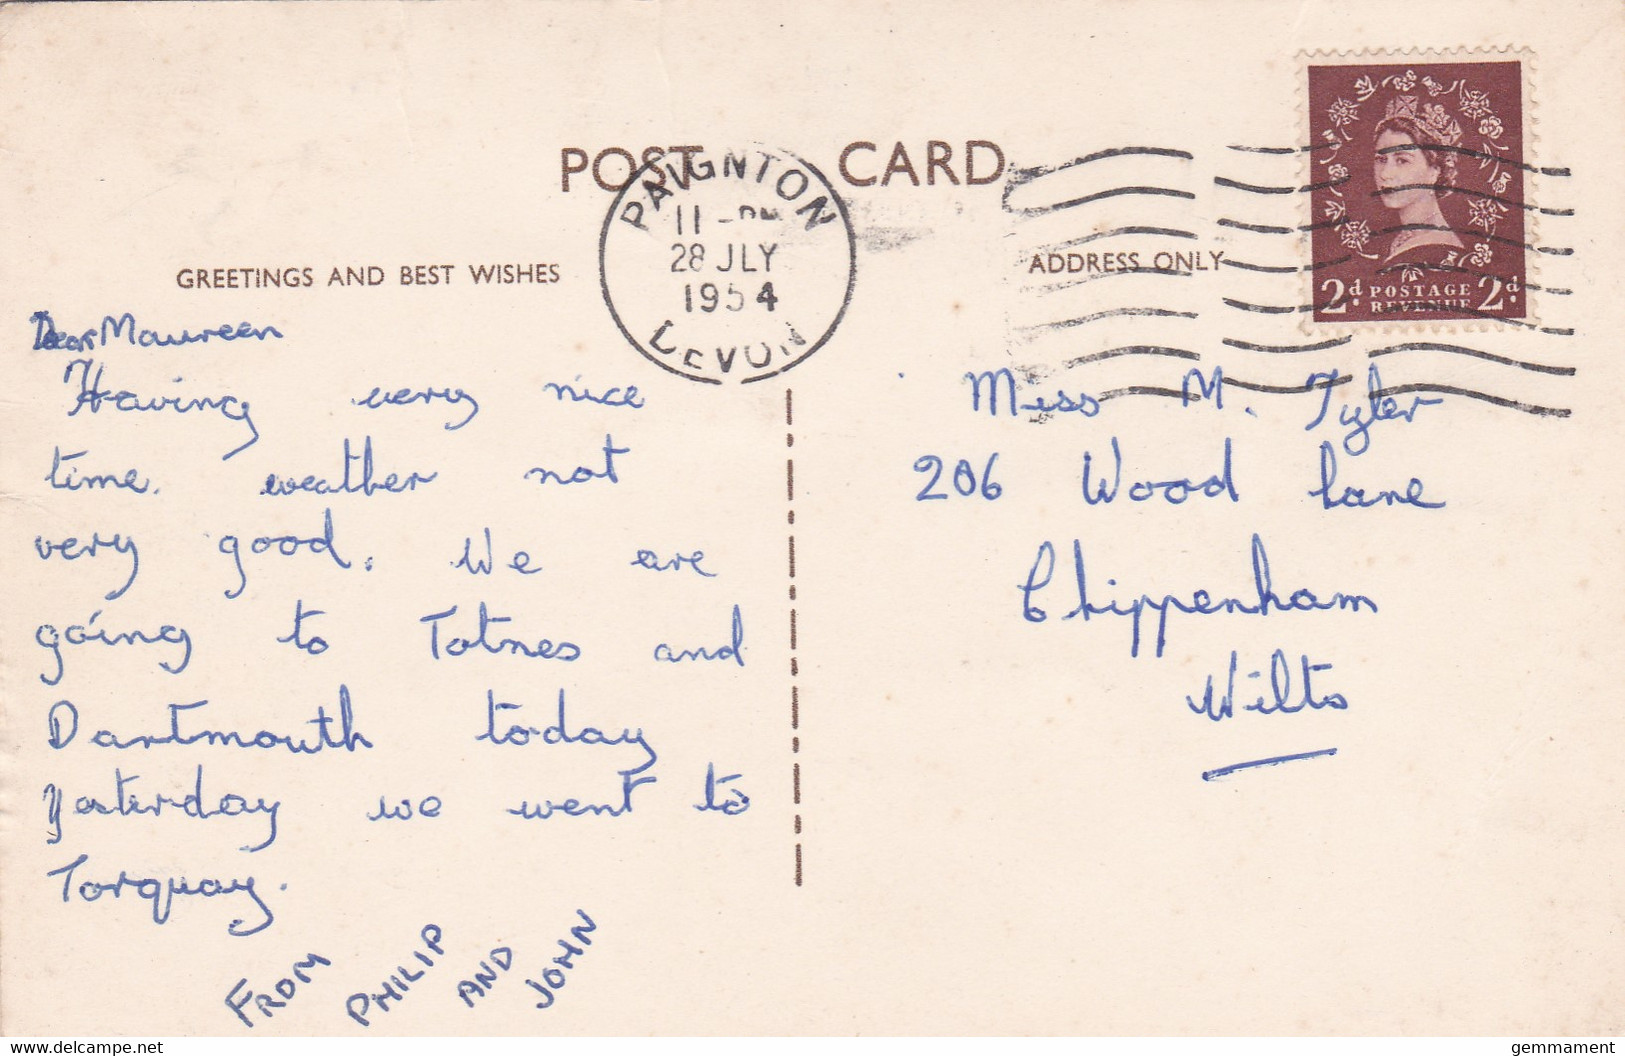 POST CARD
PAIGNTON
11 - PM
28 JLY
1954
DEVON
GREETINGS AND BEST WISHES
ADDRESS ONLY
2d POSTAGE REVENUE 2d
Dear Maureen
Having very nice
time. weather not
very good. We are
going to Totnes and
Dartmouth today
Yesterday we went to
Torquay.
FROM PHILIP AND JOHN
Miss M. Tyler
206 Wood Lane
Chippenham
Wilts
delcampe.net
gemmament